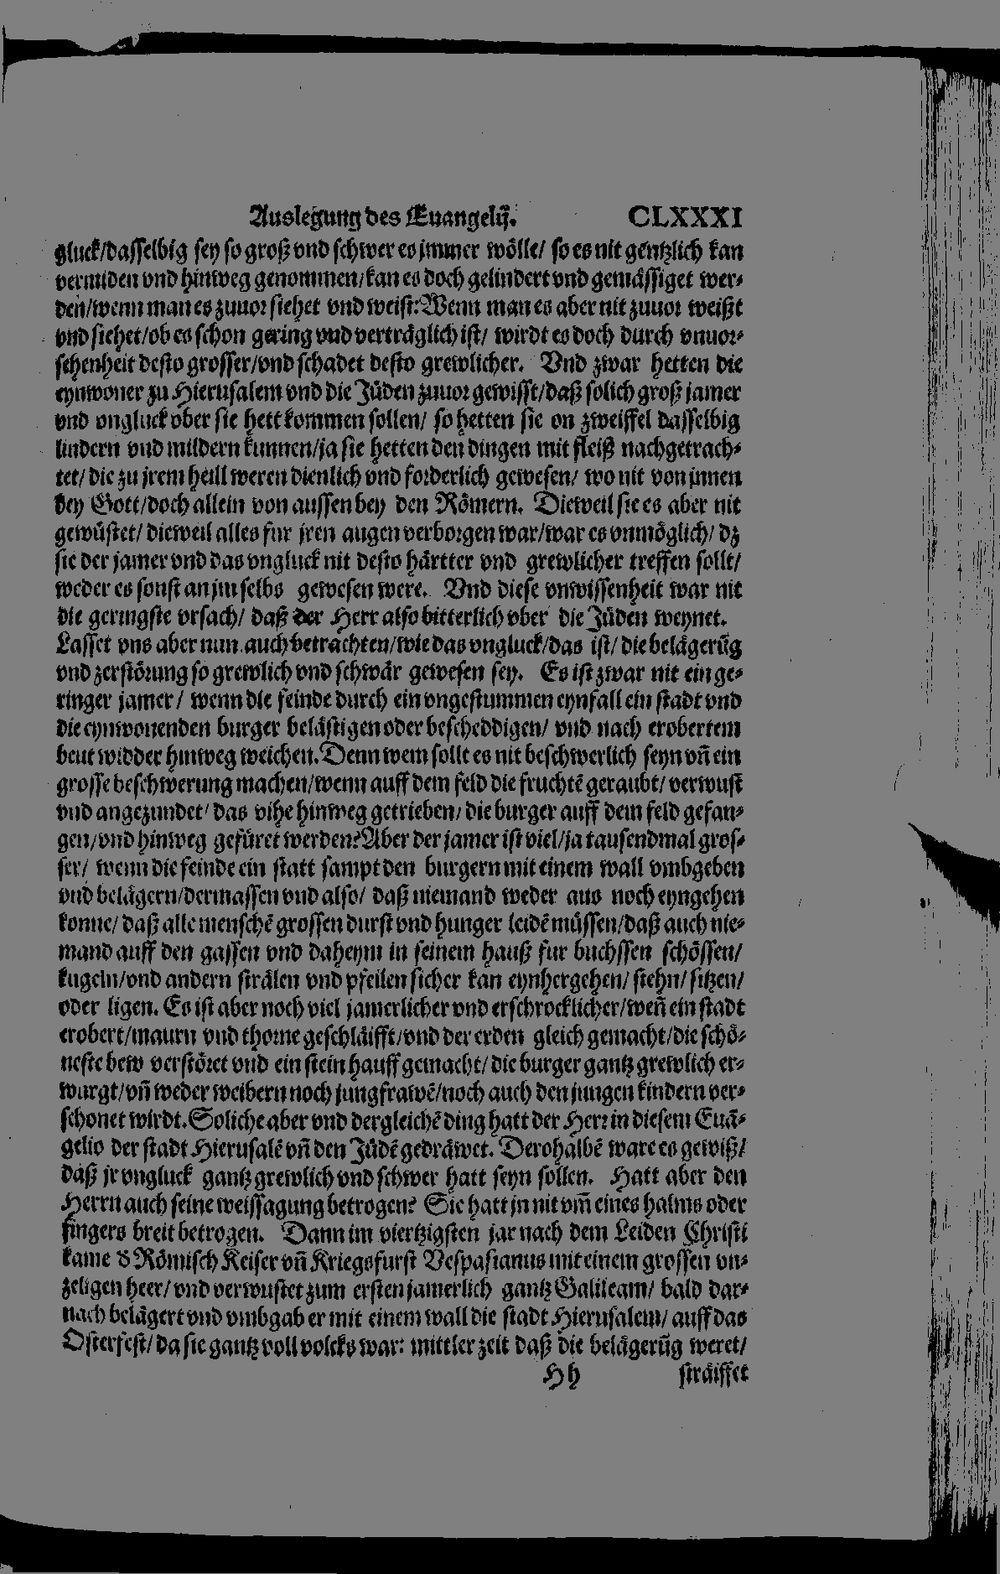 Auslegung des Euangelij. CLXXXI
gluck/dasselbig sey so groß vnd schwer es jmmer wölle/ so es nit gentzlich kan
vermiden vnd hinweg genommen/kan es doch gelindert vnd gemässiget wer-
den/wenn man es zuuor siehet vnd weist: Wenn man es aber nit zuuor weißt
vnd siehet/ob es schon gering vnd verträglich ist/ wirdt es doch durch vnuor-
sehenheit desto grosser/vnd schadet desto grewlicher. Vnd zwar hetten die
eynwoner zu Hierusalem vnd die Jüden zuuor gewisst/daß solich groß jamer
vnd vngluck ober sie hett kommen sollen/ so hetten sie on zweiffel dasselbig
lindern vnd mildern kunnen/ja sie hetten den dingen mit fleiß nachgetrach-
tet/ die zu jrem heill weren dienlich vnd forderlich gewesen/ wo nit von jnnen
bey Gott/doch allein von aussen bey den Römern. Dieweil sie es aber nit
gewüstet/ dieweil alles fur jren augen verborgen war/war es vnmöglich/ dz
sie der jamer vnd das vngluck nit desto härtter vnd grewlicher treffen sollt/
weder es sonst an jm selbs gewesen were. Vnd diese vnwissenheit war nit
die geringste vrsach/ daß der Herr also bitterlich vber die Jüden weynet.
Lasset vns aber nun auch betrachten/wie das vngluck/das ist/ die belägerũg
vnd zerstörung so grewlich vnd schwär gewesen sey. Es ist zwar nit ein ge-
ringer jamer/ wenn die feinde durch ein vngestummen eynfall ein stadt vnd
die eynwonenden burger belästigen oder bescheddigen/ vnd nach erobertem
beut widder hinweg weichen. Denn wem sollt es nit beschwerlich seyn vñ ein
grosse beschwerung machen/wenn auff dem feld die fruchtẽ geraubt/ verwust
vnd angezundet/ das vihe hinweg getrieben/ die burger auff dem feld gefan-
gen/vnd hinweg gefüret werden? Aber der jamer ist viel/ja tausendmal gros-
ser/ wenn die feinde ein statt sampt den burgern mit einem wall vmbgeben
vnd belägern/dermassen vnd also/ daß niemand weder aus noch eyngehen
konne/ daß alle menschẽ grossen durst vnd hunger leidẽ müssen/daß auch nie-
mand auff den gassen vnd daheym in seinem hauß fur buchssen schössen/
kugeln/vnd andern strälen vnd pfeilen sicher kan eynhergehen/ stehn/ sitzen/
oder ligen. Es ist aber noch viel jamerlicher vnd erschrocklicher/weñ ein stadt
erobert/maurn vnd thorne geschläifft/vnd der erden gleich gemacht/die schö-
neste bew verstöret vnd ein stein hauff gemacht/ die burger gantz grewlich er-
wurgt/vñ weder weibern noch jungfrawẽ/noch auch den jungen kindern ver-
schonet wirdt. Soliche aber vnd dergleichẽ ding hatt der Herr in diesem Euã-
gelio der stadt Hierusalẽ vñ den Jüdẽ gedräwet. Derohalbẽ ware es gewiß/
daß jr vngluck gantz grewlich vnd schwer hatt seyn sollen. Hatt aber den
Herrn auch seine weissagung betrogen? Sie hatt jn nit vm̃ eines halms oder
fingers breit betrogen. Dann im viertzigsten jar nach dem Leiden Christi
kame d Römisch Keiser vñ Kriegsfurst Vespasianus mit einem grossen vn-
zeligen heer/ vnd verwustet zum ersten jamerlich gantz Galileam/ bald dar-
nach belägert vnd vmbgab er mit einem wall die stadt Hierusalem/ auff das
Osterfest/ da sie gantz voll volcks war: mittler zeit daß die belägerũg weret/
Hh sträiffet